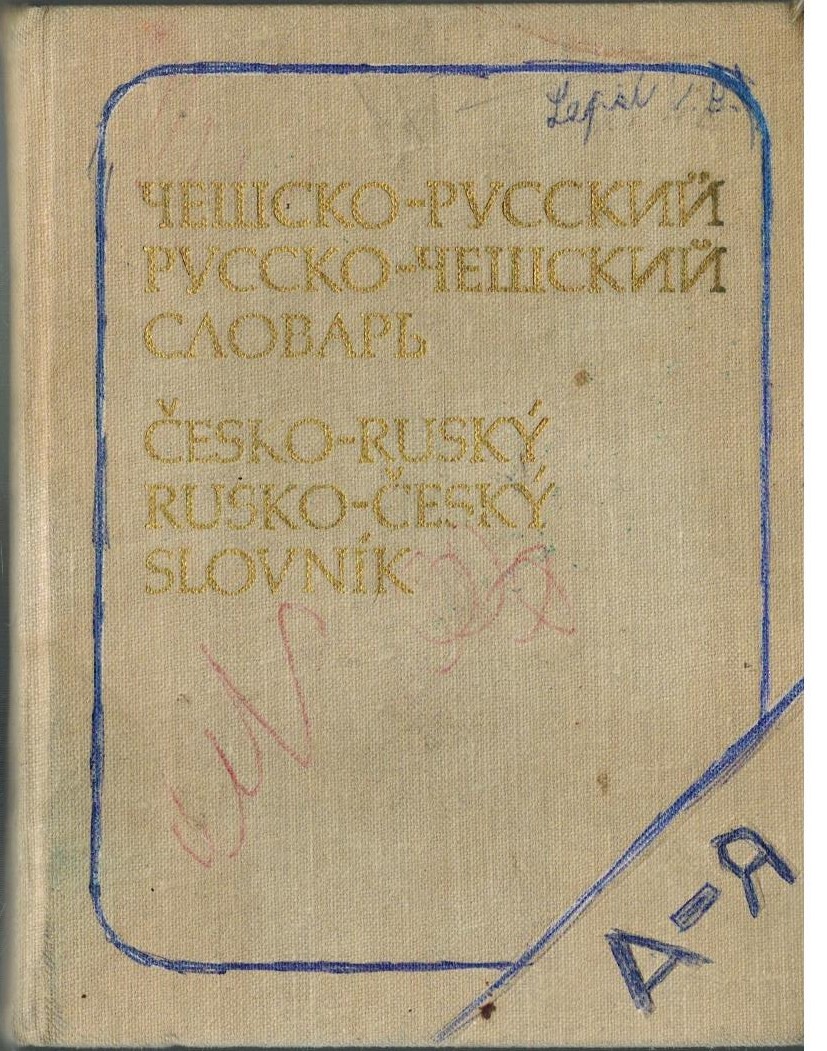 ЧЕШСКО-РУССКИЙ
РУССКО-ЧЕШСКИЙ
СЛОВАРЬ
ČESKO-RUSKÝ
RUSKO-ČESKÝ
SLOVNÍK
А-Я